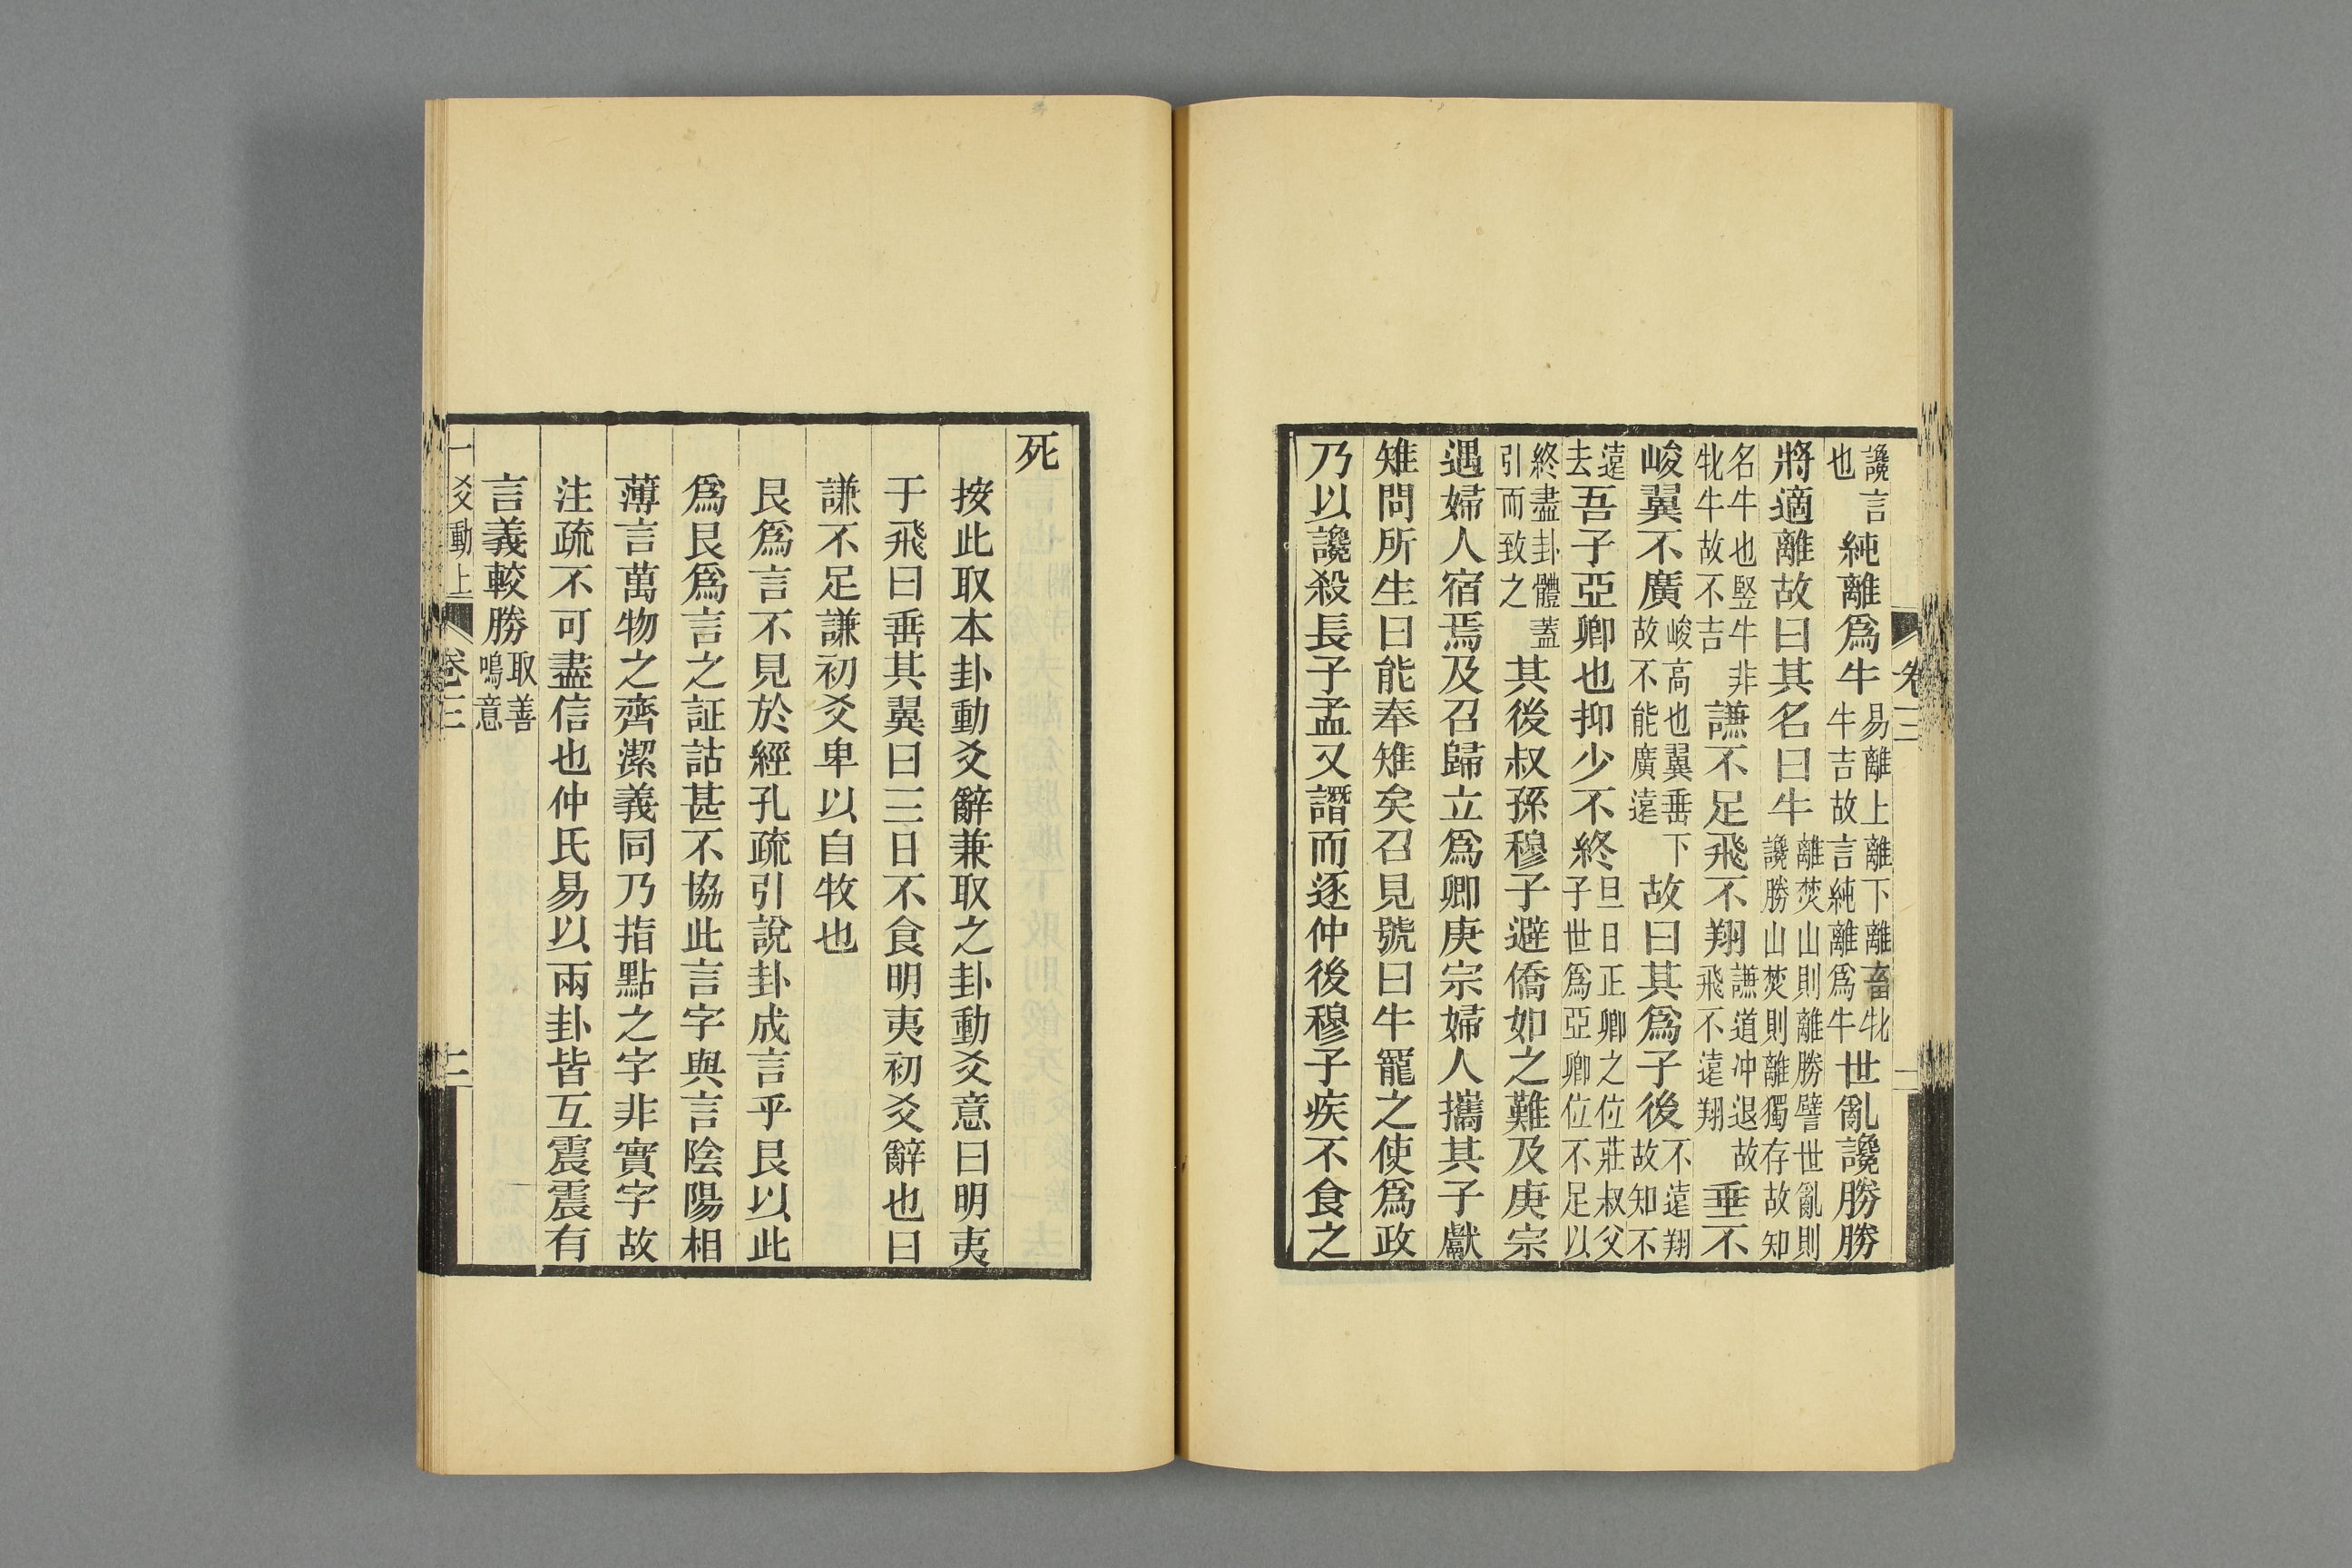 讒言也純離爲牛易離上離下離畜牝牛吉故言純離爲牛世亂讒勝勝
將適離故曰其名曰牛離焚山則離勝譬世亂則讒勝山焚則離獨存故知
名牛也豎牛非牝牛故不吉謙不足飛不翔謙道冲退故飛不遠翔垂不
峻翼不廣峻高也翼垂下故不能廣遠故曰其爲子後不遠翔故知不
遠去吾子亞卿也抑少不終旦日正卿之位莊叔父子世爲亞卿位不足以
終盡卦體蓋引而致之其後叔孫穆子避僑如之難及庚宗
遇婦人宿焉及召歸立爲卿庚宗婦人攜其子獻
雉問所生曰能奉雉矣召見號曰牛寵之使爲政
乃以讒殺長子孟又譖而逐仲後穆子疾不食之
卷三
一
死
按此取本卦動爻辭兼取之卦動爻意曰明夷
于飛曰垂其翼曰三日不食明夷初爻辭也曰
謙不足謙初爻卑以自牧也
艮爲言不見於經孔疏引說卦成言乎艮以此
爲艮爲言之証詁甚不協此言字與言陰陽相
薄言萬物之齊潔義同乃指點之字非實字故
注疏不可盡信也仲氏易以兩卦皆互震震有
言義較勝取善鳴意
一爻動上
卷三
二